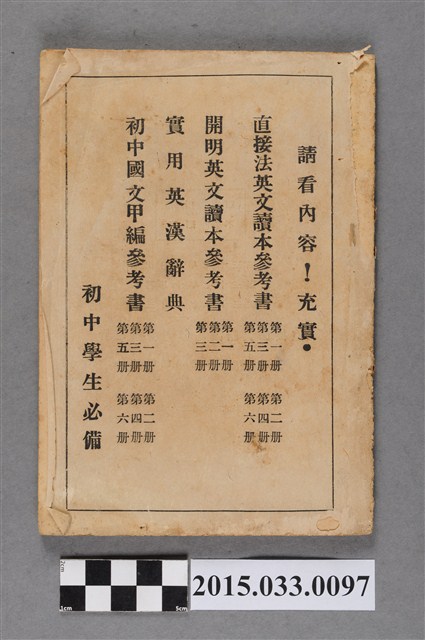 請看內容！充實•
直接法英文讀本參考書
第一册 第二册
第三册 第四册
第五册 第六册
開明英文讀本參考書
第一册
第二册
第三册
實用英漢辭典
初中國文甲編參考書
第一册 第二册
第三册 第四册
第五册 第六册
初中學生必備
2cm
1cm
5cm
2015.033.0097